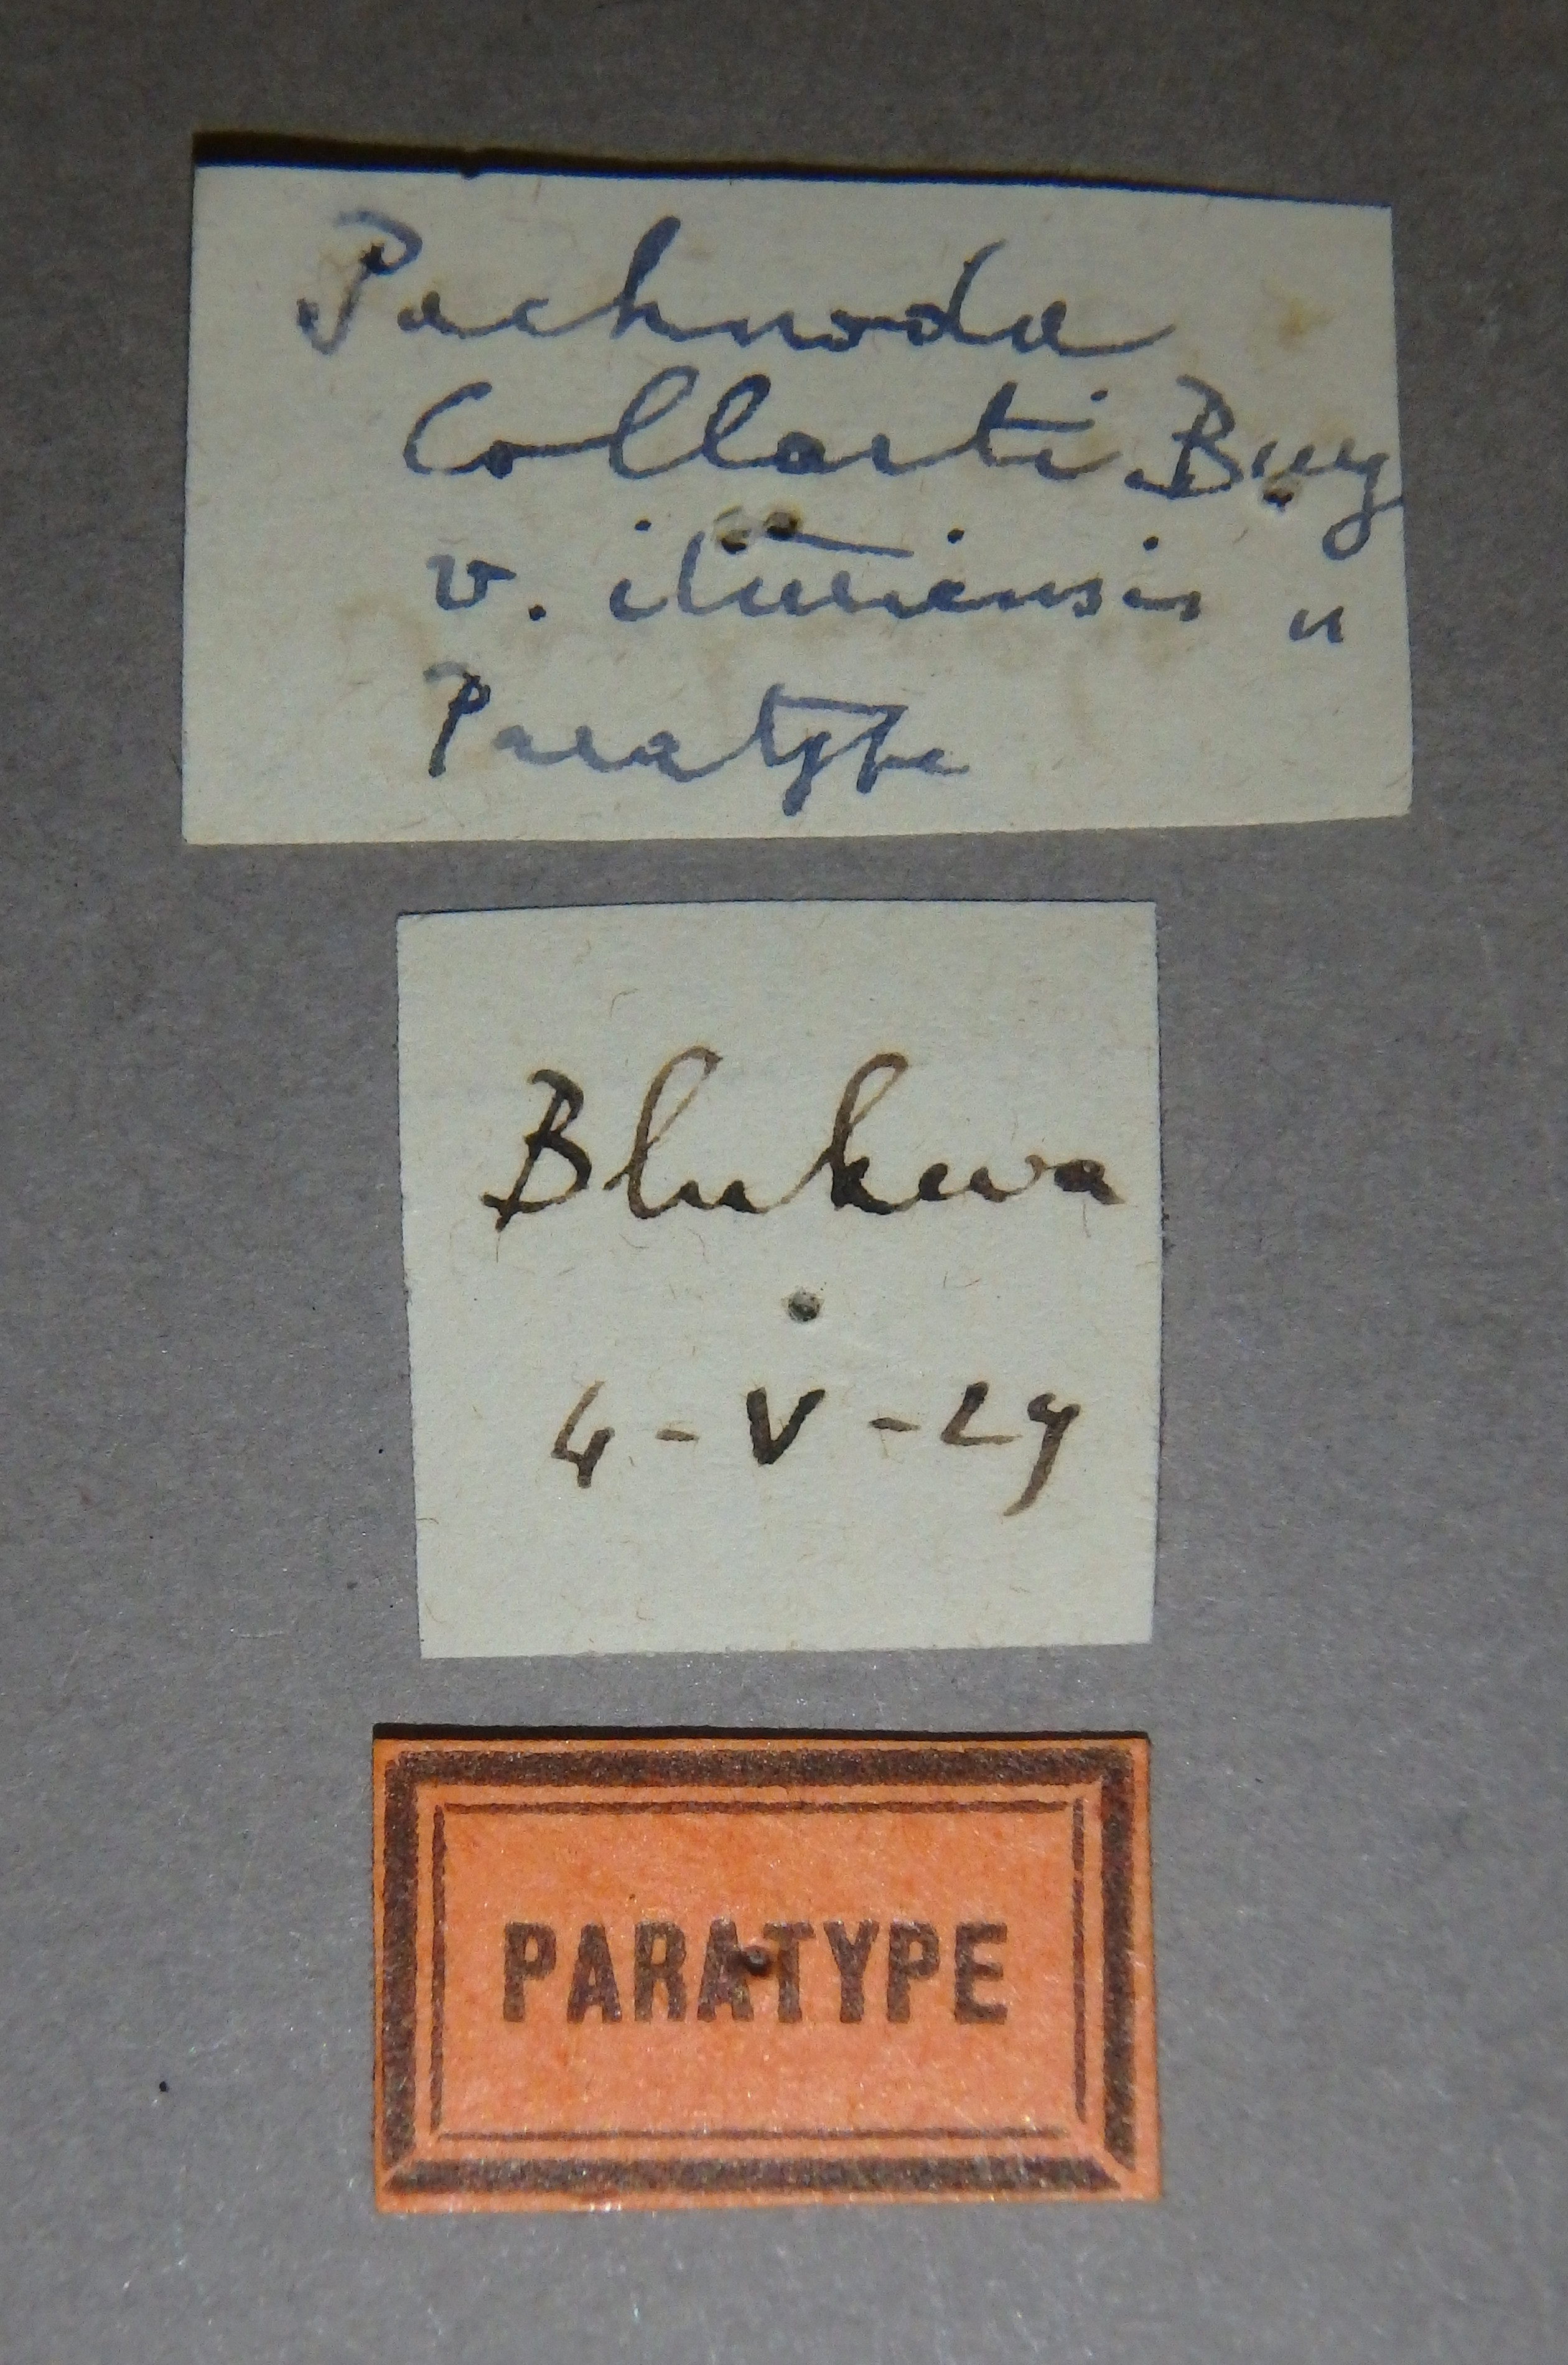 Pachnoda
Collarti Burg
v. ituriensis "
Paratype
Blukwa
4-V-29
PARATYPE